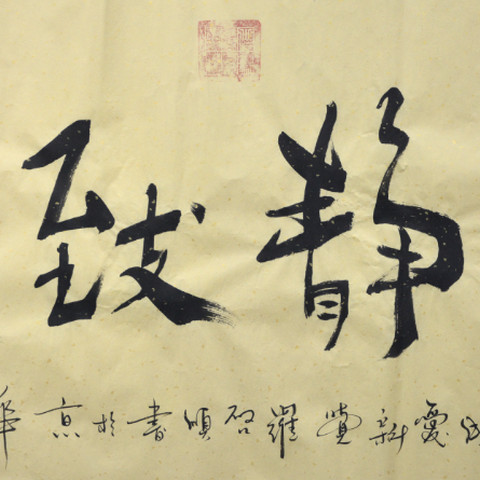 静致
愛新覺羅启書於京華